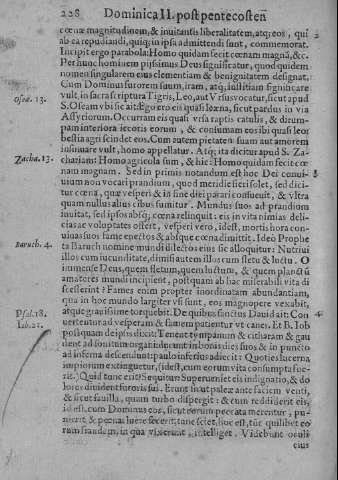 228 Dominica II. post pentecosten
cœnæ magnitudinem, & inuitantis liberalitatem, atq; eos, qui
ab ea repudiandi, quiq; in ipsa admittendi sunt, commemorat.
Incipit ergo parabola: Homo quidam fecit cœnam magnã, &c.
Per hunc hominem pijssimus Deus significatur, quod quidem
nomen singularem eius clementiam & benignitatem designat:
Cum Dominus furorem suum, iram, atq; iustitiam significare
vult, in sacra scriptura Tigris, Leo, aut Vrsus vocatur, sicut apud
Osea. 13. S. Oseam vbi sic ait: Ego ero eis quasi leæna, sicut pardus in via
Assyriorum. Occurram eis quasi vrsa raptis catulis, & dirum-
pam interiora iecoris eorum, & consumam eos ibi quasi leo:
bestia agri scindet eos. Cum autem pietatem suam aut amorem
insinuare vult, homo appellatur. Atq; ita dicitur apud S. Za-
Zacha. 13. chariam: Homo agricola sum, & hic: Homo quidam fecit cœ-
nam magnam. Sed in primis notandum est hoc Dei conui-
uium non vocari prandium, quod meridie fieri solet, sed dici-
tur cœna, quæ vesperi & in fine diei parari consueuit, & vltra
quam nullus alius cibus sumitur. Mundus suos ad prandium
inuitat, sed ipsos absq; cœna relinquit: eis in vita nimias deli-
cias ac voluptates offert, vesperi vero, idest, mortis hora con-
uiuas suos fame enectos & absque cœna dimittit. Ideò Prophe
Baruch. 4. ta Baruch nomine mundi illecto eius sic alloquitur: Nutriui
illos cum iucunditate, dimisi autem illos cum fletu & luctu. O
immense Deus, quem fletum, quem luctum, & quem planctũ
amatores mundi incipient, postquam ab hac miserabili vita di
scesserint? Fames enim propter inordinatam abundantiam,
qua in hoc mundo largiter vsi sunt, eos magnopere vexabit,
Psal. 18. atque grauissime torquebit. De quibus sanctus Dauid ait: Con
uertentur ad vesperam & famem patientur vt canes. Et B. Iob
Iob. 21. postquam de ipsis dixit: Tenent tympanum & citharam & gau
dent ad sonitum organi: ducunt in bonis dies suos & in puncto
ad inferna descendunt: paulo inferius adiecit: Quoties lucerna
impiorum extinguetur, (idest, cum eorum vita consumpta fue-
rit.) Quid tunc erit? Sequitur: Superueniet eis indignatio, & do
lores diuident furoris sui. Erunt sicut paleæ ante faciem venti,
& sicut fauilla, quam turbo dispergit: & cum reddiderit eis,
id est, cum Dominus eos, sicut eorum peccata merentur, pu-
nierit, & pœnas luere fecerit, tunc sciet, hoc est, tũc quilibet eo
rum fraudem, in qua vixerunt, intelliget. Videbunt oculi
eius